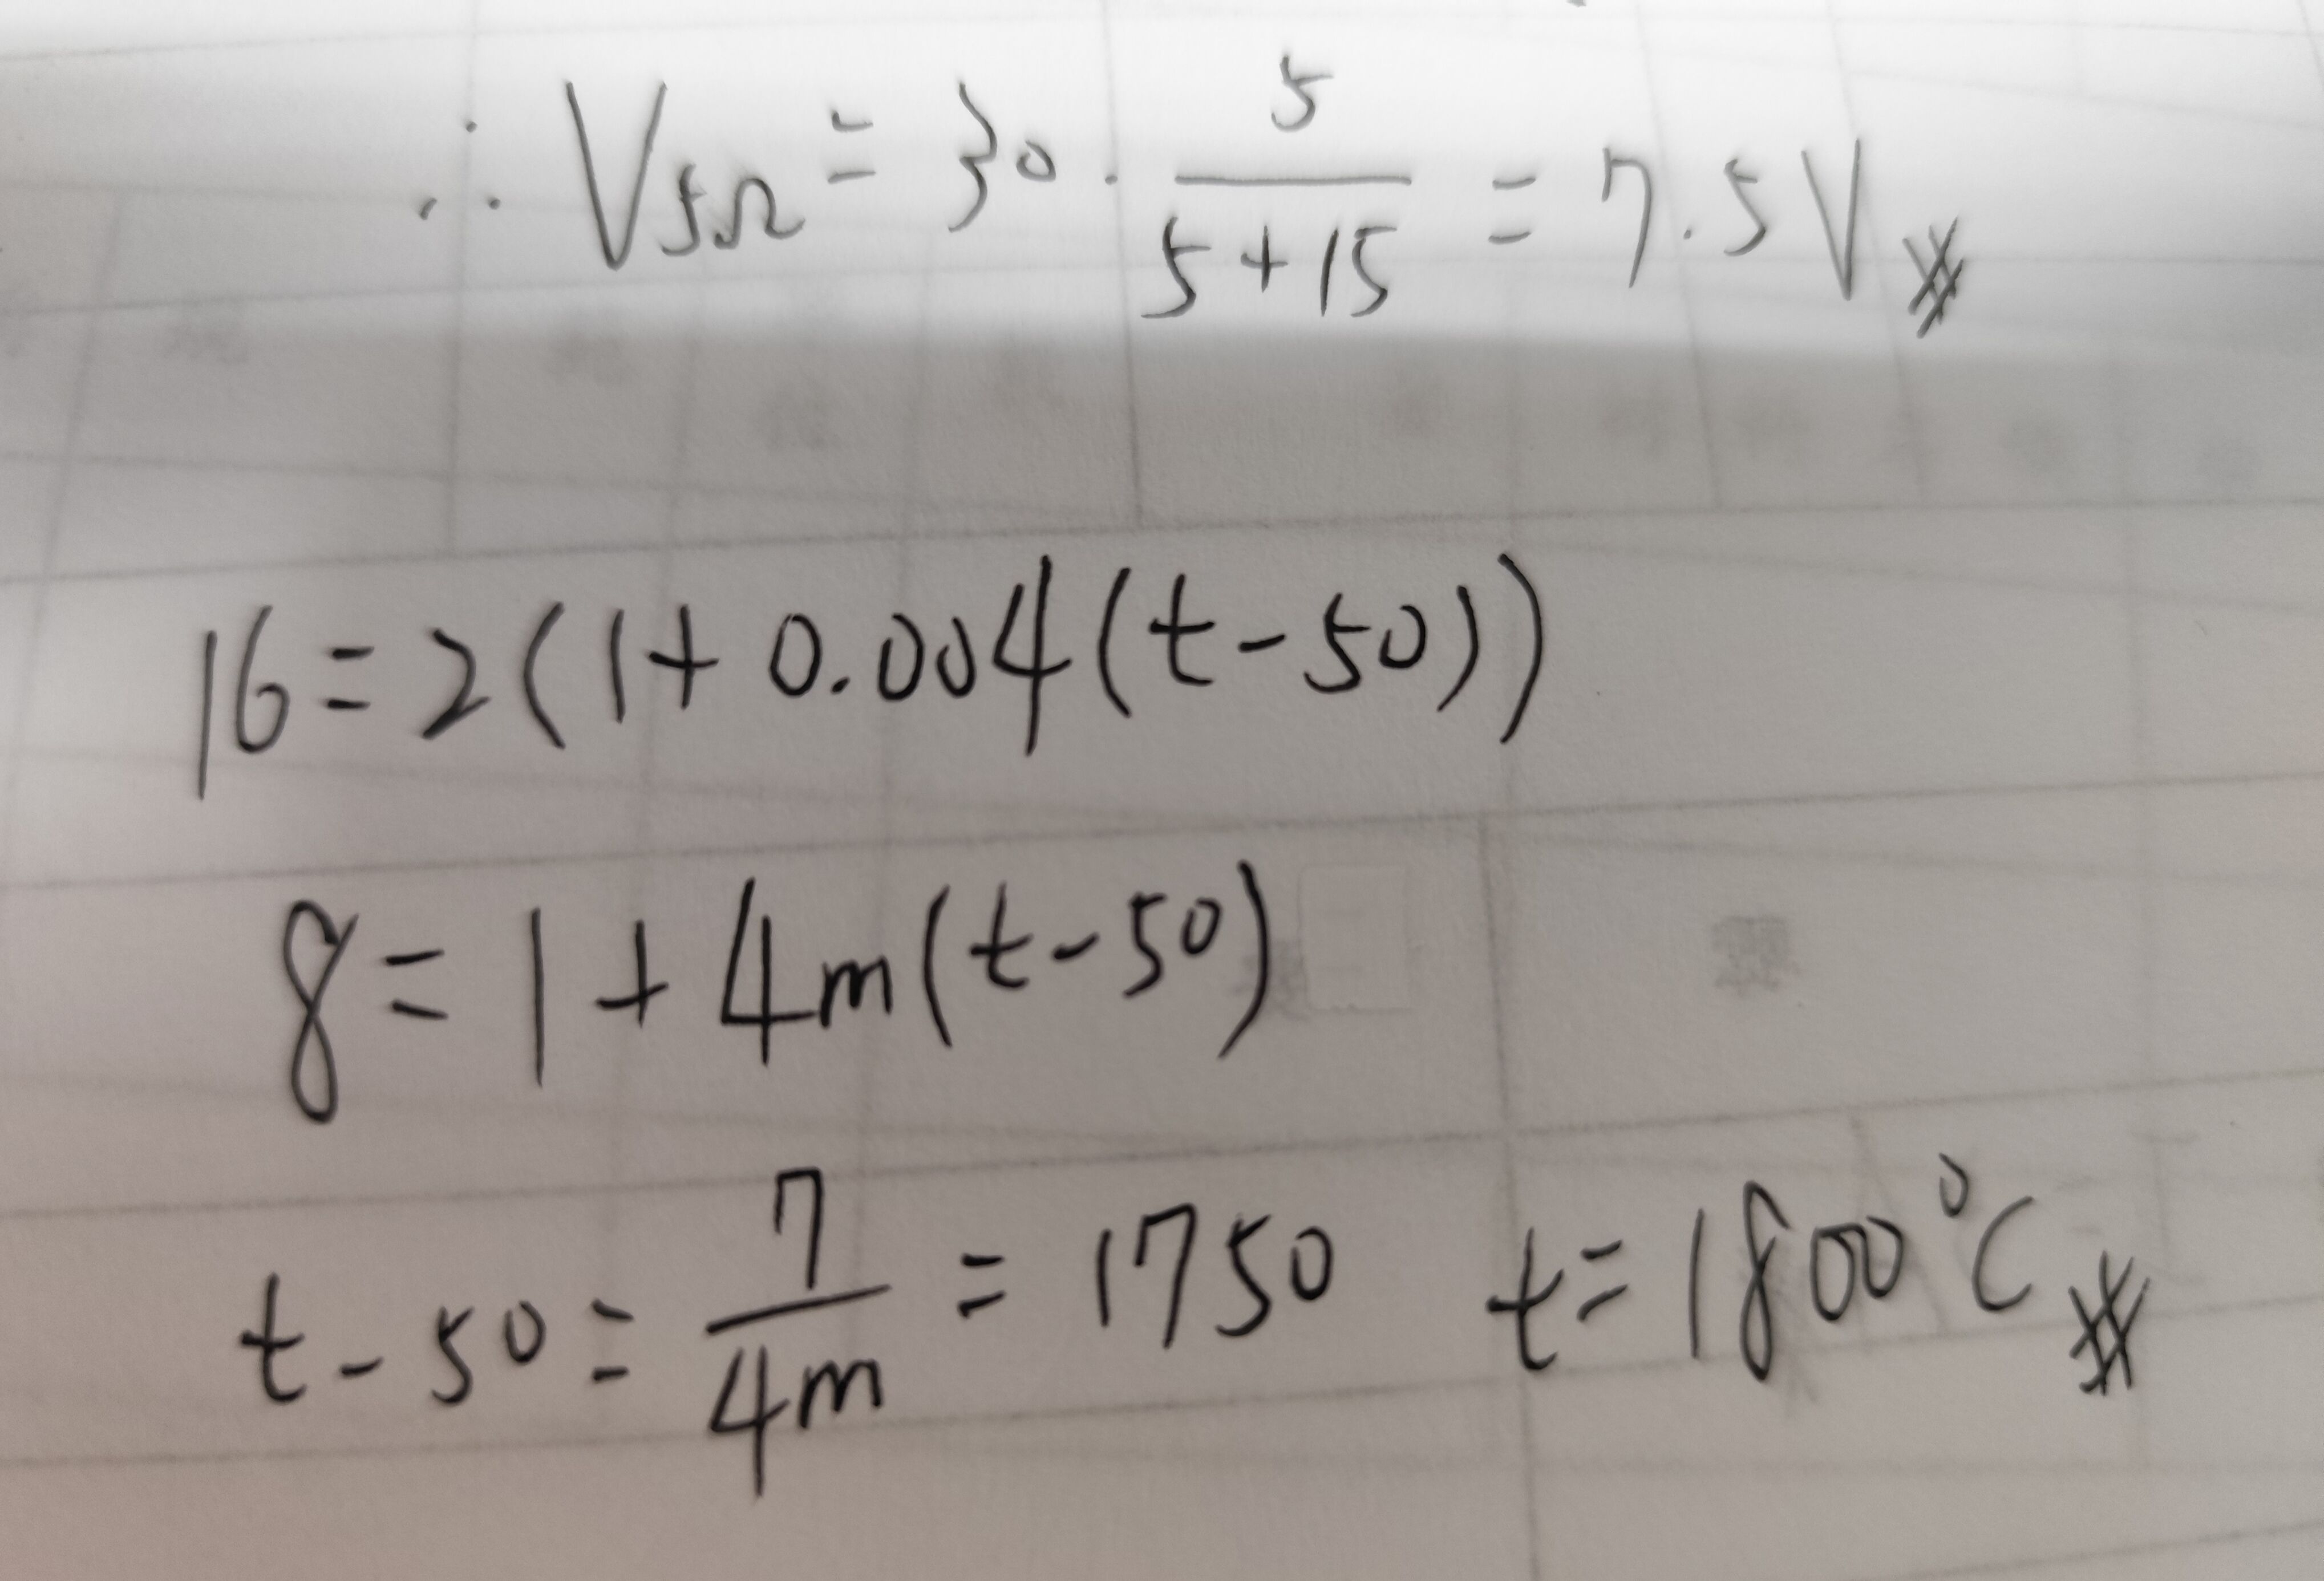 ∴ V5Ω = 30 · 5/(5+15) = 7.5V
16 = 2(1 + 0.004(t-50))
8 = 1 + 4m(t-50)
t-50 = 7/4m = 1750 t = 1800°C